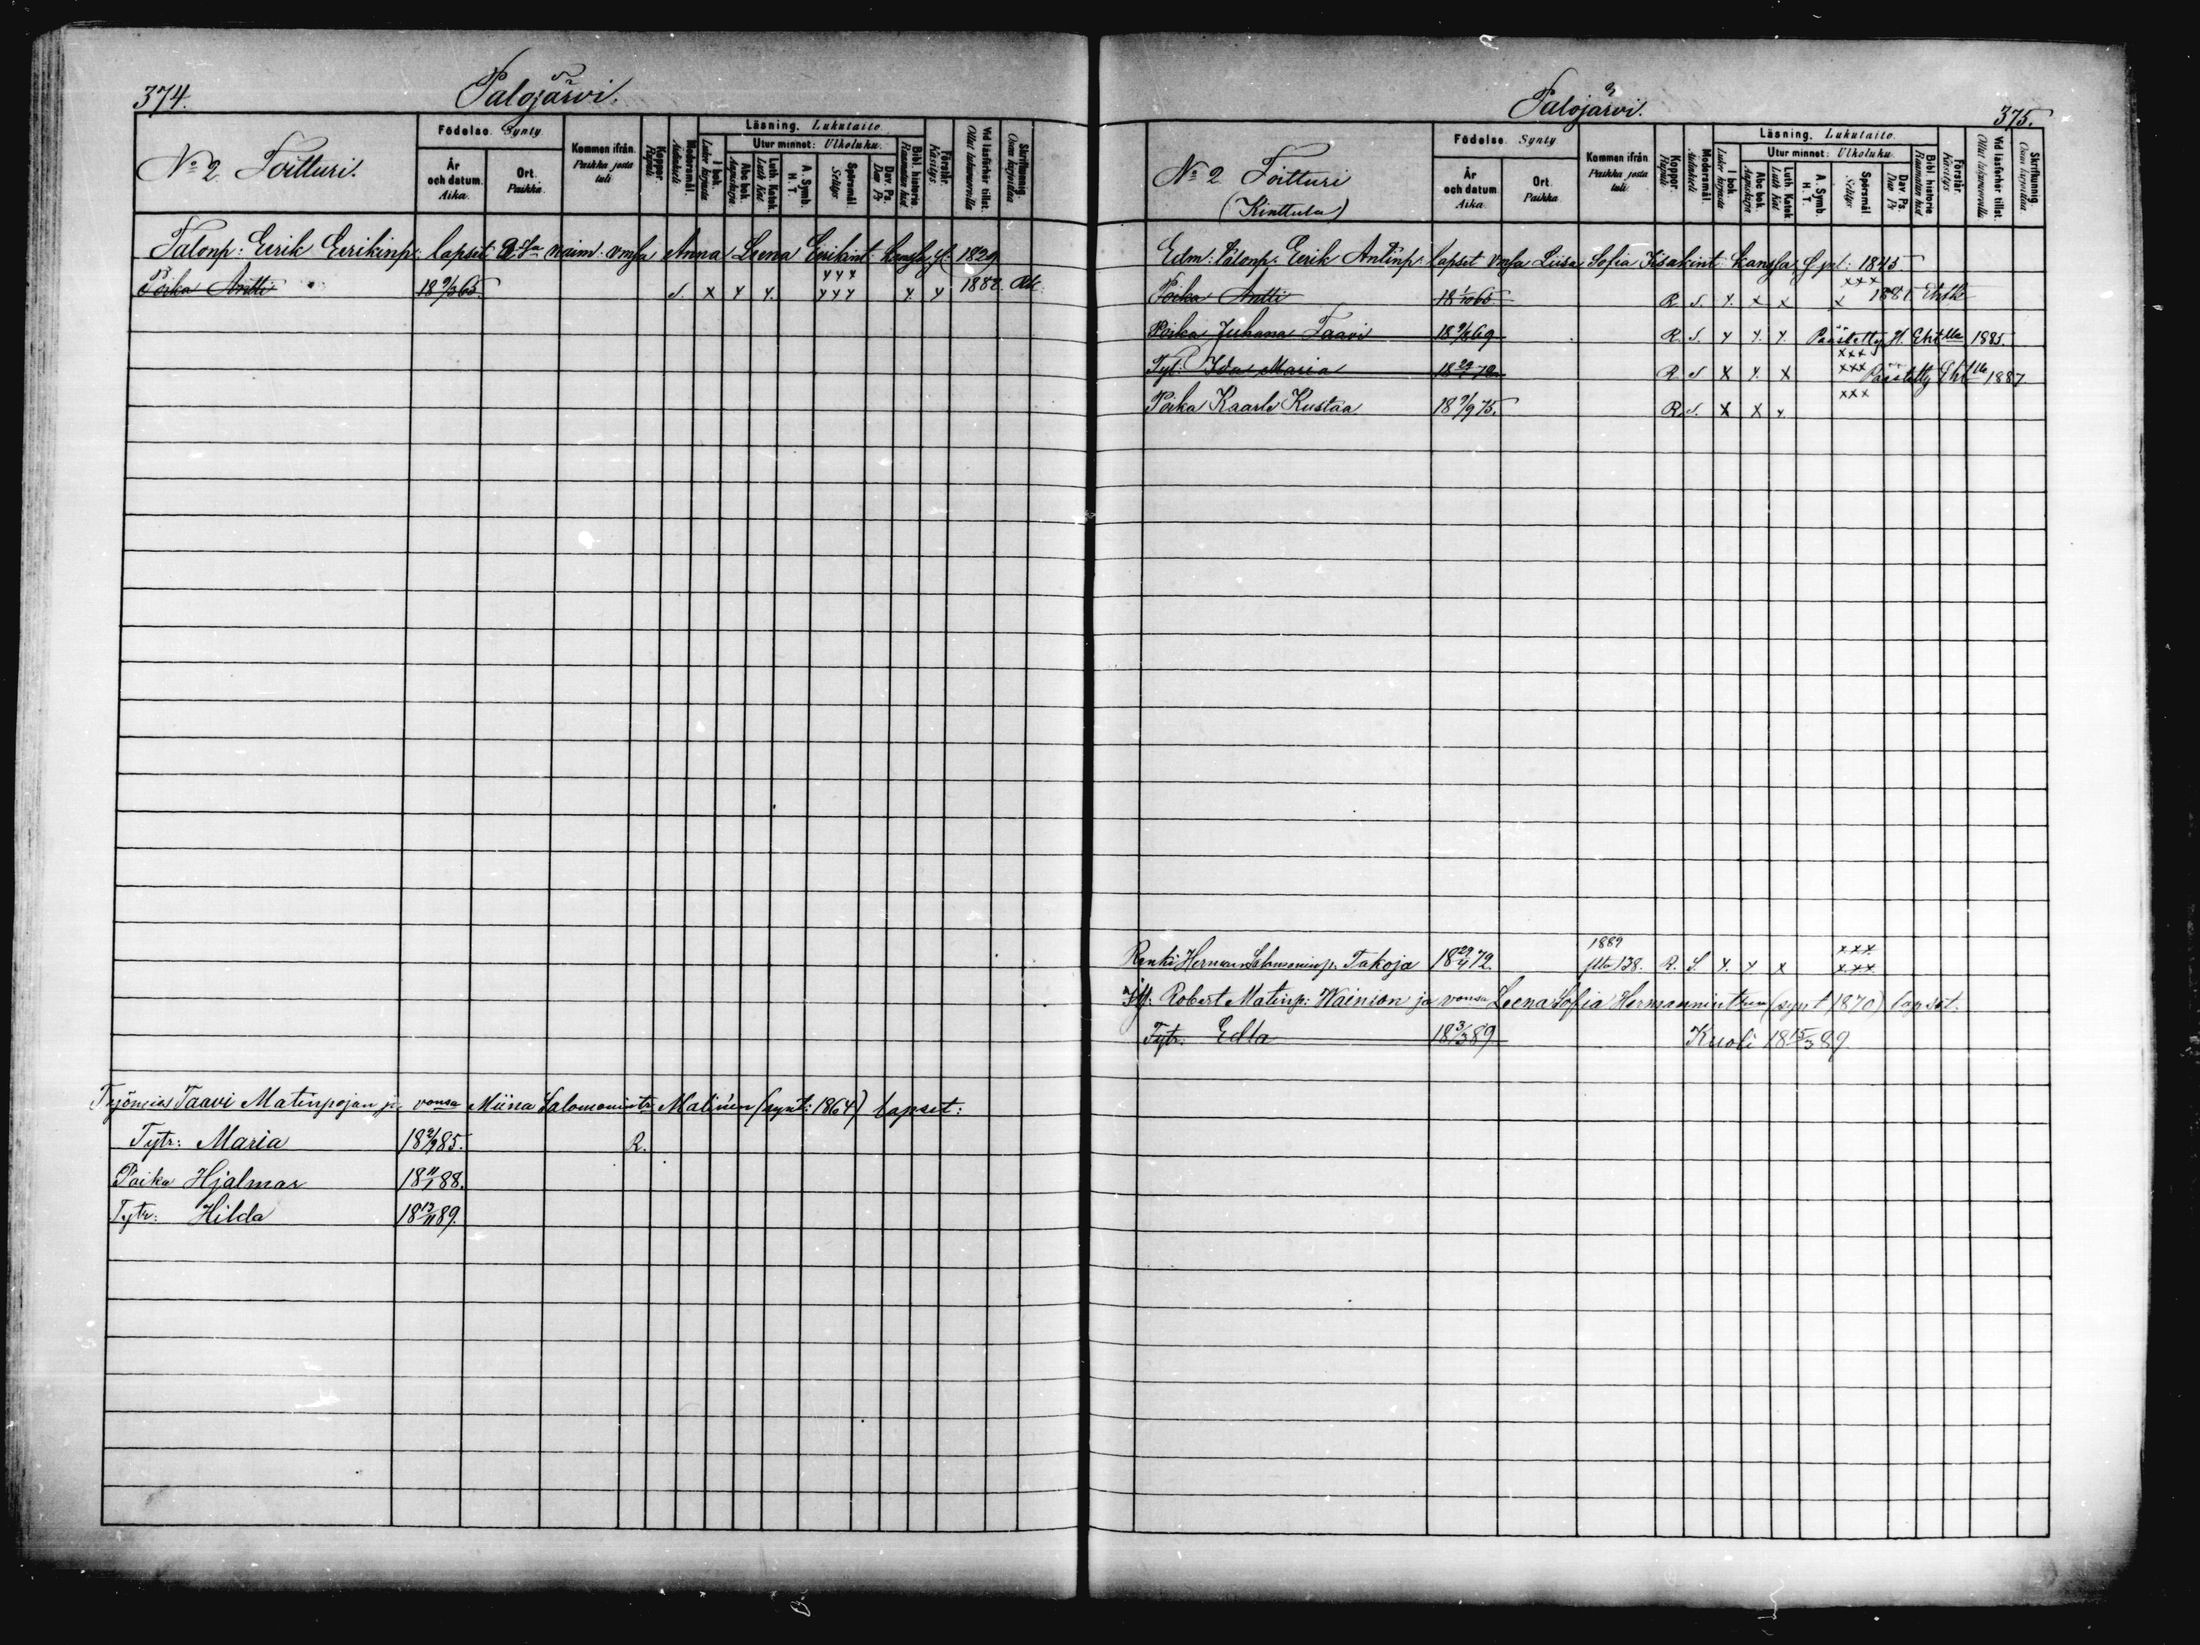 374.
Palojärvi.
№ 2 Toitturi.
Födelse. Synty.
År och datum. Aika.
Ort. Paikka.
Kommen ifrån. Paikka josta tuli
Koppor. Rupuli
Modersmål. Äidinkieli
Läsning. Lukutaito.
I bok. Lukee kirjasta
Utur minnet: Ulkoluku.
Abc bok. Aapiskirja
Luth. Katek. Luth. Kat.
A. Symb. H. T.
Spörsmål Selitys
Dav. Ps. Dav. Ps
Bibl. historie. Raamatun hist.
Förstår. Käsitys.
Vid läsförhör tillst. Ollut lukuvuorolla
Skrifkunnig. Osaa kirjoittaa
Talonp: Eerik Eerikinp: lapset vmsa Anna Leena Eerikint: kanssa 1829
x x x
Poika Antti 18 9/3 65. s. x x x. x x x x. x 1882.
Työmies Taavi Matinpojan ja vonsa Miina Salomonintr Malinen (synt: 1864) lapset:
Tytr: Maria 18 2/9 85. R.
Poika Hjalmar 18 11/1 88.
Tytr: Hilda 18 13/11 89.
Palojärvi.
375.
№ 2 Toitturi
(Kinttula)
Födelse. Synty
År och datum Aika.
Ort. Paikka.
Kommen ifrån. Paikka josta tuli.
Koppor. Rupuli
Modersmål. Äidinkieli
Läsning. Lukutaito.
I bok. Lukee kirjasta
Utur minnet: Ulkoluku.
Abc bok. Aapiskirja
Luth Katek Luth Kat
A. Symb. H. T.
Spörsmål Selitys
Dav. Ps. Dav Ps
Bibl. historie Raamatun hist.
Förstår. Käsitys
Vid läsförhör tillst. Ollut lukuvuorolla
Skrifkunnig. Osaa kirjoittaa
Edm: Talonp. Eerik Antinp: lapset vmsa Liisa Sofia Iisakint: kanssa 1845
x x x
Poika Antti 18 1/10 65 R. s. x. x x x 1881
Poika Juhana Taavi 18 9/8 69 R. s. x x. x. Päästetty H. Eht:lla 1885.
x x x
Tyt: Ida Maria 18 29/ 72 R. s x x. x x x x Päästetty Eht:lla 1887
x x x
Poika Kaarle Kustaa 18 9/9 75. R. s. x x x.
1889 x x x
Renki Herman Salomoninp. Takoja 18 29/4 72. 138. R. S. x. x x x.x.x.
Robert Matinp: Wainion ja vonsa Leena Sofia Hermannintren (synt 1870) lapset:
Tytr. Edla 18 3/3 89 Kuoli 18 15/3 89